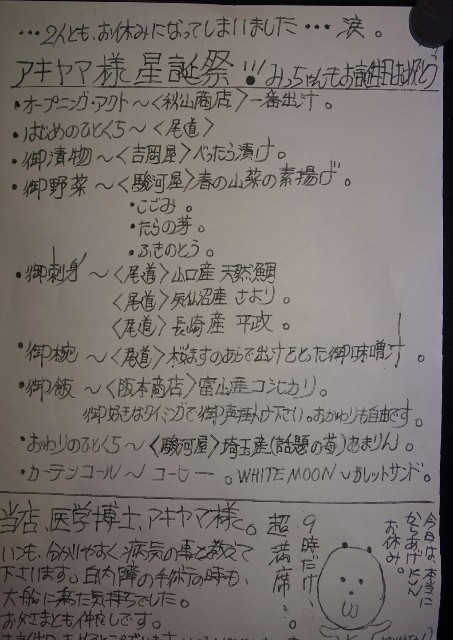 …2人とも、お休みになってしまいました…涙。
アキヤマ様 星誕祭!!! みっちゃんもお誕生日おめでとう
・オープニング・アクト〜〈秋山商店〉一番出汁。
・はじめのひとくち〜〈尾道〉
・御漬物〜〈吉岡屋〉べったら漬け。
・御野菜〜〈駿河屋〉春の山菜の素揚げ。
・こごみ。
・たらの芽。
・ふきのとう。
・御刺身〜〈尾道〉山口産 天然鯛
〈尾道〉気仙沼産 さより。
〈尾道〉長崎産 平政。
・御椀〜〈尾道〉桜ますのあらで出汁をとった御味噌汁。
・御飯〜〈阪本商店〉富山産コシヒカリ。
御好きなタイミングで御声掛け下さい。おかわりも自由です。
・おわりのひとくち〜〈駿河屋〉埼玉産(話題の苺)あまりん。
・カーテンコール〜コーヒー。WHITE MOON〜ガレットサンド。
当店、医学博士、アキヤマ様と。
いつも、分かりやすく、病気の事を教えて
下さいます。白内障の手術の時も、
大船に乗た気持ちでした。
お父さまとも仲良しです。
9時だけ、
超満席…。
今日は、本当に
お休み。